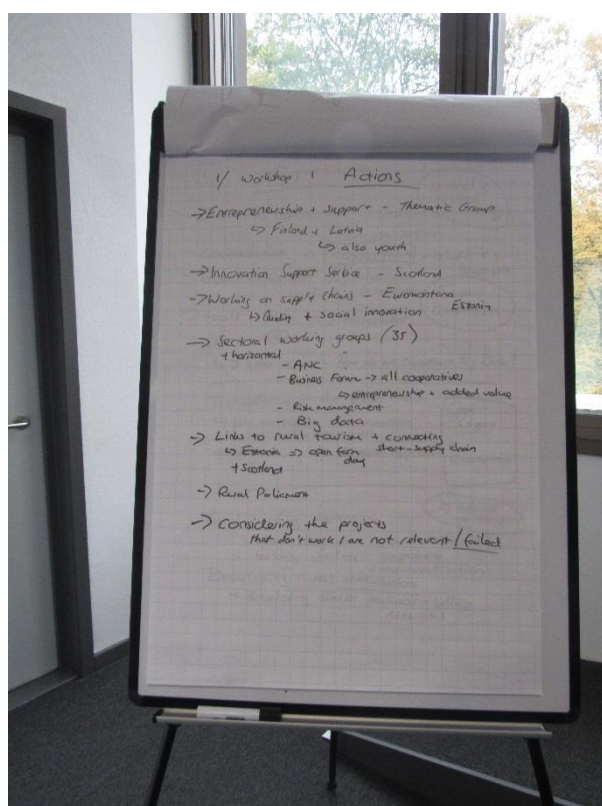 1/ Workshop 1 Actions
→ Entrepreneurship + support - Thematic Group
↳ Finland + Latvia
↳ also youth
→ Innovation Support Service - Scotland
→ Working on supply chains - Euromontana
Estonia
↳ Quality + social innovation
→ Sectoral working groups (35)
+ horizontal
- ANC
- Business Forum → all cooperatives
↳ entrepreneurship + added value
- Risk management
- Big data
→ Links to rural tourism + connecting
↳ Estonia => open farm day short-supply chain
+ Scotland
→ Rural Parliament
→ Considering the projects
that don't work / are not relevant / failed